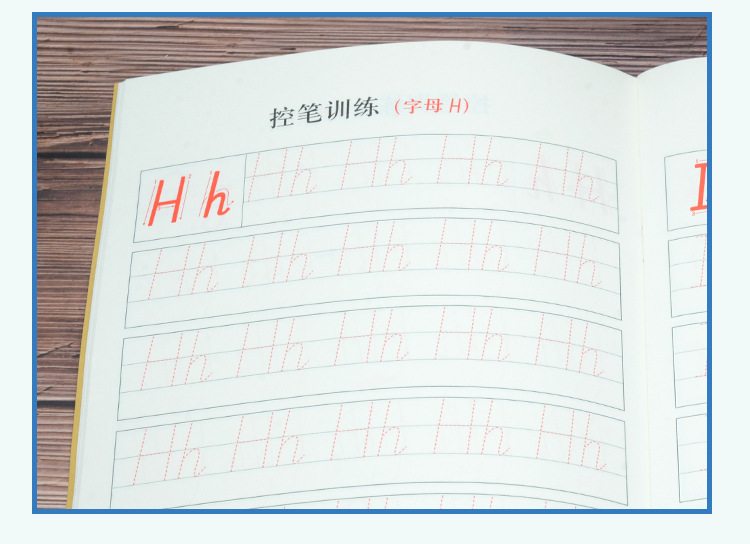 控笔训练（字母H）
H h Hh Hh Hh Hh
Hh Hh Hh Hh Hh
Hh Hh Hh Hh Hh
Hh Hh Hh Hh Hh